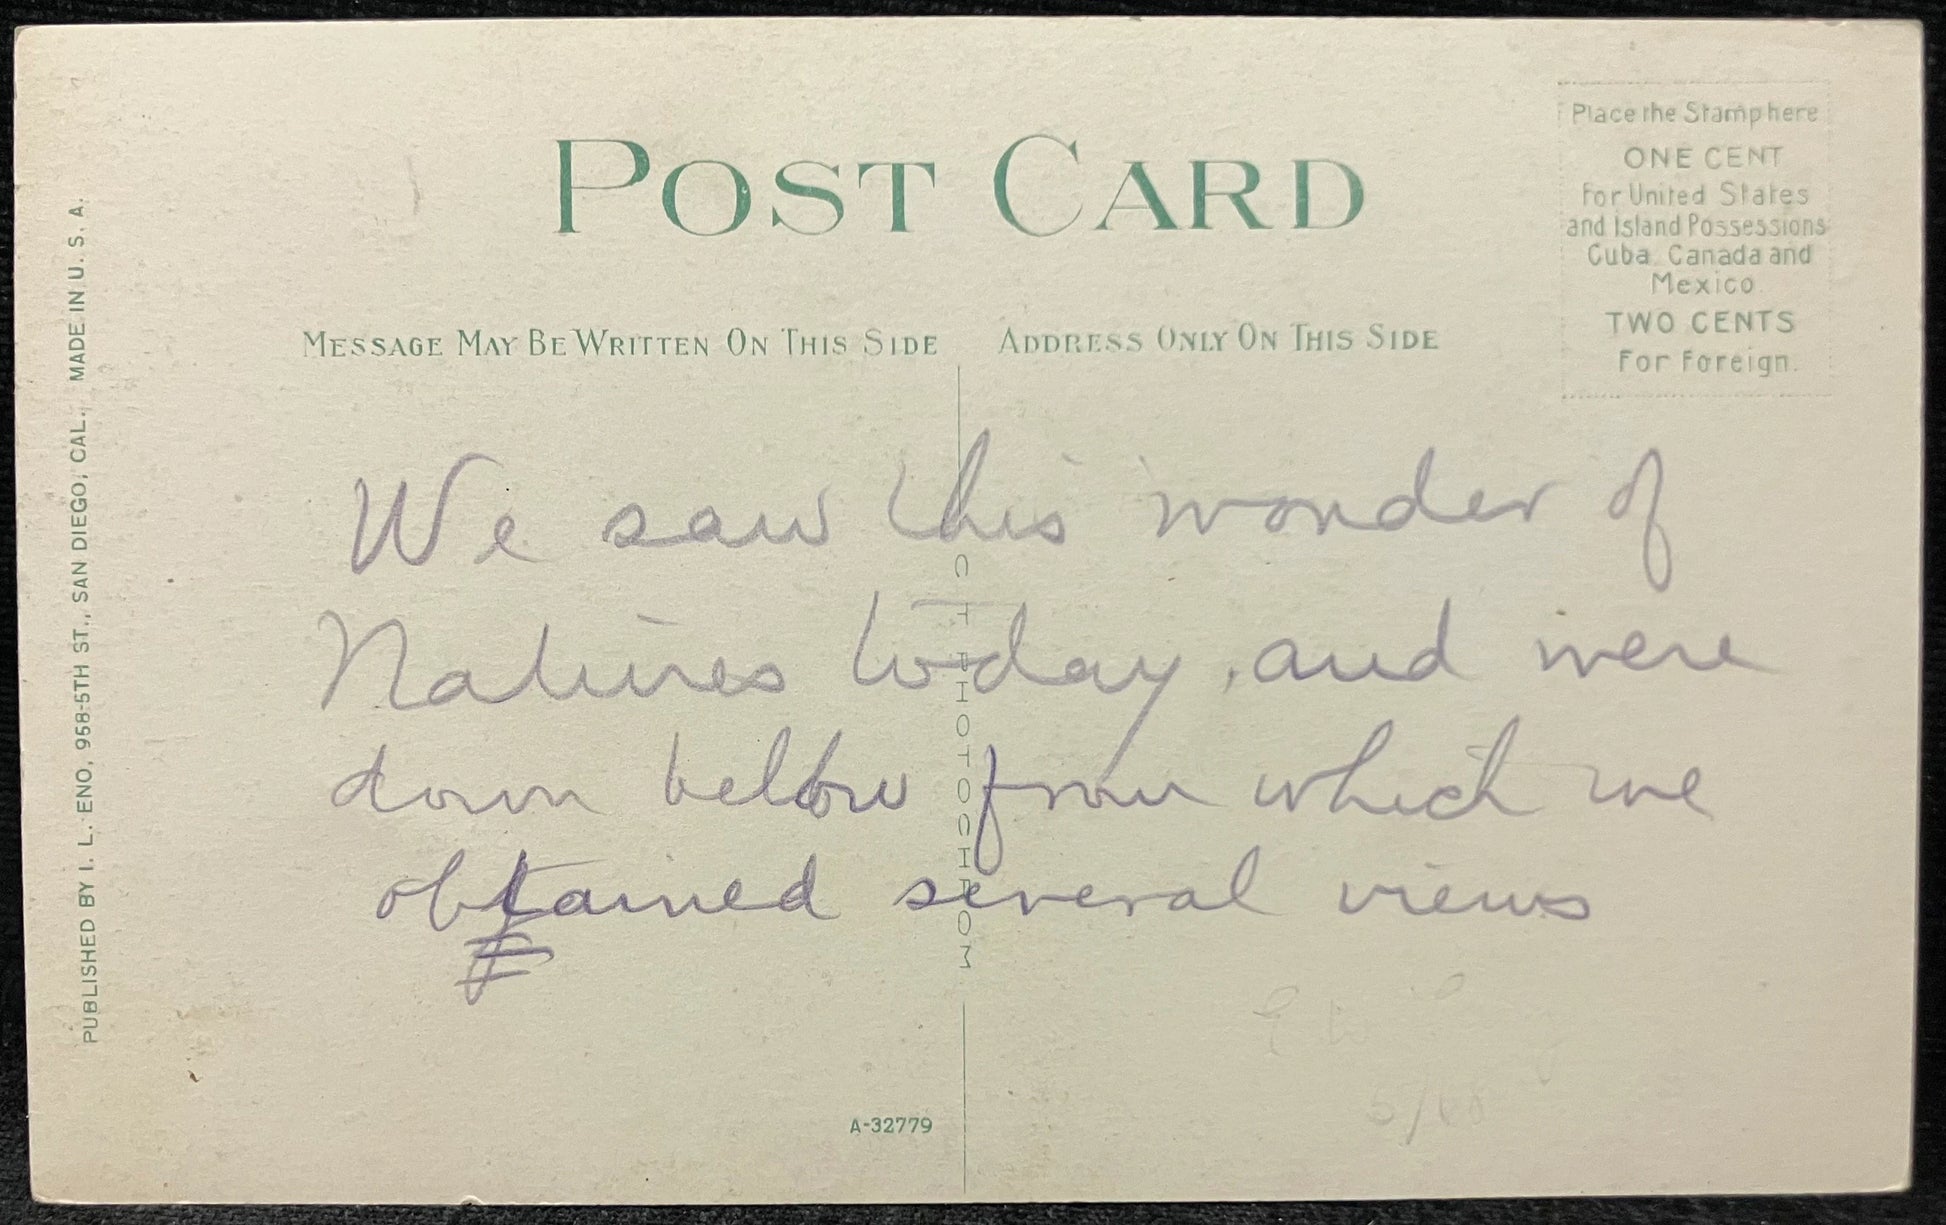 POST CARD
Place the Stamp here
ONE CENT
For United States
and Island Possessions
Cuba, Canada and
Mexico.
TWO CENTS
For Foreign.
MESSAGE MAY BE WRITTEN ON THIS SIDE
ADDRESS ONLY ON THIS SIDE
We saw this wonder of
Natures today, and were
down below from which we
obtained several views
C T PHOTOCHROM
A-32779
PUBLISHED BY I. L. ENO, 958-5TH ST., SAN DIEGO, CAL. MADE IN U. S. A.